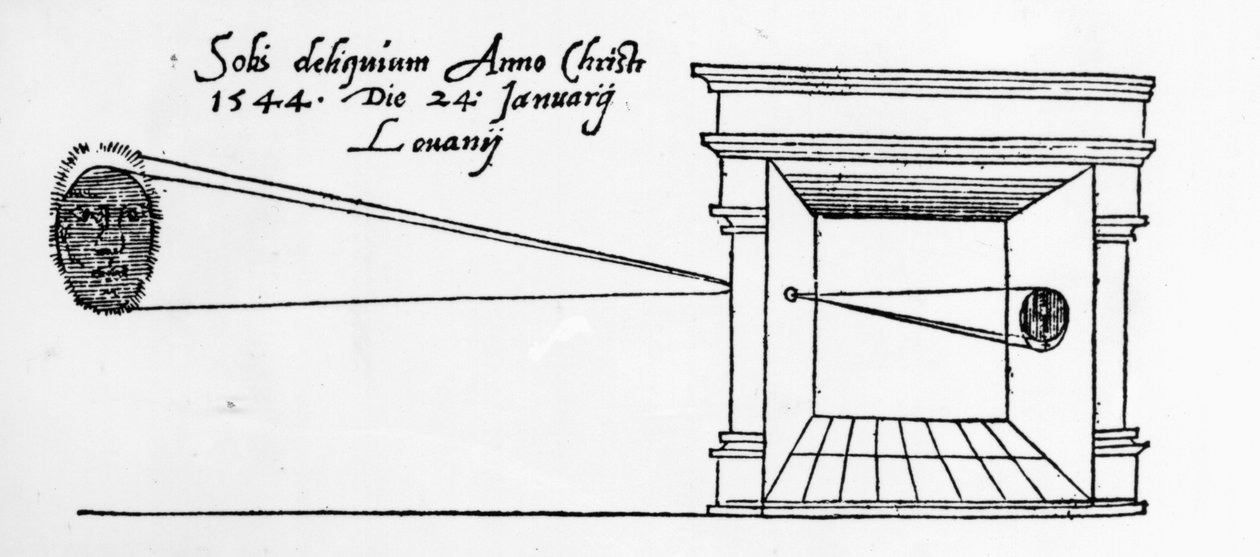 Solis deliquium Anno Christi
1544. Die 24: Januarij
Louanij